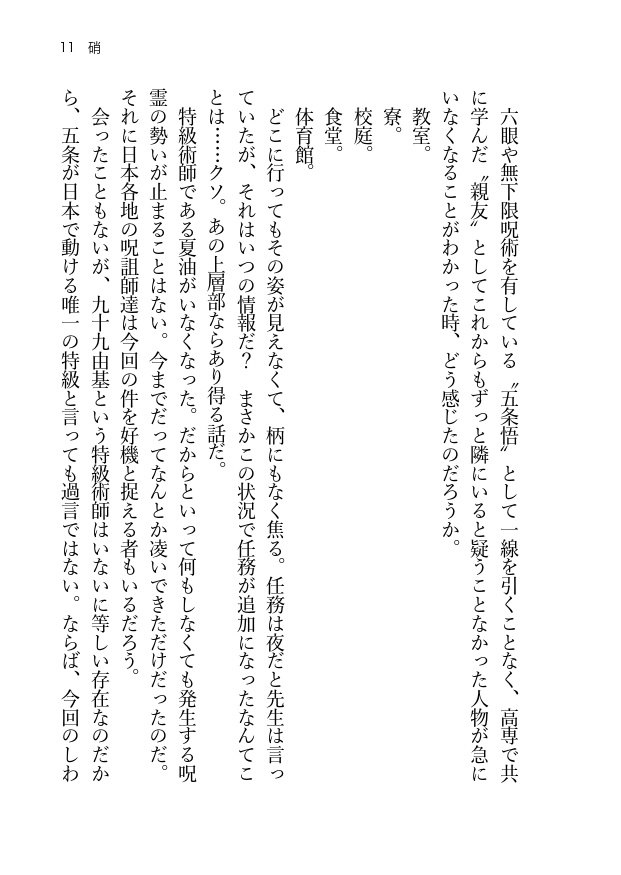 11 硝
六眼や無下限呪術を有している〝五条悟〟として一線を引くことなく、高専で共
に学んだ〝親友〟としてこれからもずっと隣にいると疑うことなかった人物が急に
いなくなることがわかった時、どう感じたのだろうか。
教室。
寮。
校庭。
食堂。
体育館。
どこに行ってもその姿が見えなくて、柄にもなく焦る。任務は夜だと先生は言っ
ていたが、それはいつの情報だ？　まさかこの状況で任務が追加になったなんてこ
とは……クソ。あの上層部ならあり得る話だ。
特級術師である夏油がいなくなった。だからといって何もしなくても発生する呪
霊の勢いが止まることはない。今までだってなんとか凌いできただけだったのだ。
それに日本各地の呪詛師達は今回の件を好機と捉える者もいるだろう。
会ったこともないが、九十九由基という特級術師はいないに等しい存在なのだか
ら、五条が日本で動ける唯一の特級と言っても過言ではない。ならば、今回のしわ